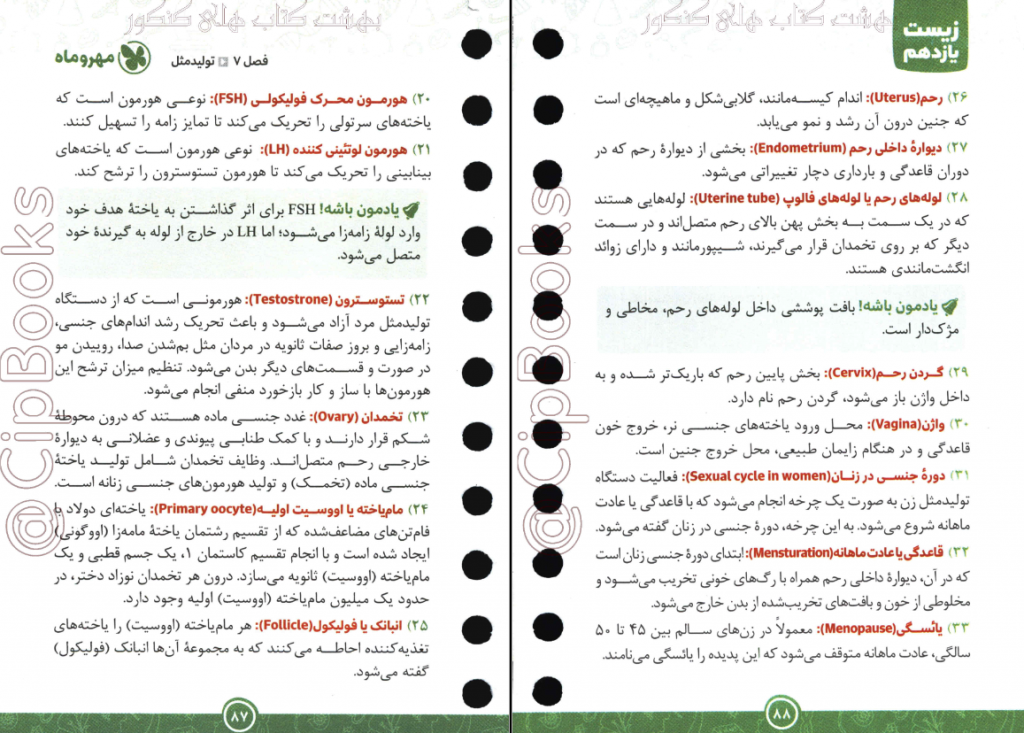 بهشت کتاب های کنکور
فصل ۷ تولیدمثل
مهروماه
۲۰) هورمون محرک فولیکولی (FSH): نوعی هورمون است که
یاخته‌های سرتولی را تحریک می‌کند تا تمایز زامه را تسهیل کنند.
۲۱) هورمون لوتئینی کننده (LH): نوعی هورمون است که یاخته‌های
بینابینی را تحریک می‌کند تا هورمون تستوسترون را ترشح کند.
یادمون باشه! FSH برای اثر گذاشتن به یاختهٔ هدف خود
وارد لولهٔ زامه‌زا می‌شود؛ اما LH در خارج از لوله به گیرندهٔ خود
متصل می‌شود.
۲۲) تستوسترون (Testostrone): هورمونی است که از دستگاه
تولیدمثل مرد آزاد می‌شود و باعث تحریک رشد اندام‌های جنسی،
زامه‌زایی و بروز صفات ثانویه در مردان مثل بم‌شدن صدا، روییدن مو
در صورت و قسمت‌های دیگر بدن می‌شود. تنظیم میزان ترشح این
هورمون‌ها با ساز و کار بازخورد منفی انجام می‌شود.
۲۳) تخمدان (Ovary): غدد جنسی ماده هستند که درون محوطهٔ
شکم قرار دارند و با کمک طنابی پیوندی و عضلانی به دیوارهٔ
خارجی رحم متصل‌اند. وظایف تخمدان شامل تولید یاختهٔ
جنسی ماده (تخمک) و تولید هورمون‌های جنسی زنانه است.
۲۴) مام‌یاخته یا اووسیت اولیه(Primary oocyte): یاخته‌ای دولاد با
فام‌تن‌های مضاعف‌شده که از تقسیم رشتمان یاختهٔ مامه‌زا (اووگونی)
ایجاد شده است و با انجام تقسیم کاستمان ۱، یک جسم قطبی و یک
مام‌یاخته (اووسیت) ثانویه می‌سازد. درون هر تخمدان نوزاد دختر، در
حدود یک میلیون مام‌یاخته (اووسیت) اولیه وجود دارد.
۲۵) انبانک یا فولیکول(Follicle): هر مام‌یاخته (اووسیت) را یاخته‌های
تغذیه‌کننده احاطه می‌کنند که به مجموعهٔ آن‌ها انبانک (فولیکول)
گفته می‌شود.
۸۷
@CipBooks
بهشت کتاب های کنکور
زیست
یازدهم
۲۶) رحم(Uterus): اندام کیسه‌مانند، گلابی‌شکل و ماهیچه‌ای است
که جنین درون آن رشد و نمو می‌یابد.
۲۷) دیوارهٔ داخلی رحم (Endometrium): بخشی از دیوارهٔ رحم که در
دوران قاعدگی و بارداری دچار تغییراتی می‌شود.
۲۸) لوله‌های رحم یا لوله‌های فالوپ (Uterine tube): لوله‌هایی هستند
که در یک سمت به بخش پهن بالای رحم متصل‌اند و در سمت
دیگر که بر روی تخمدان قرار می‌گیرند، شیپورمانند و دارای زوائد
انگشت‌مانندی هستند.
یادمون باشه! بافت پوششی داخل لوله‌های رحم، مخاطی و
مژک‌دار است.
۲۹) گردن رحم(Cervix): بخش پایین رحم که باریک‌تر شده و به
داخل واژن باز می‌شود، گردن رحم نام دارد.
۳۰) واژن(Vagina): محل ورود یاخته‌های جنسی نر، خروج خون
قاعدگی و در هنگام زایمان طبیعی، محل خروج جنین است.
۳۱) دورهٔ جنسی در زنان(Sexual cycle in women): فعالیت دستگاه
تولیدمثل زن به صورت یک چرخه انجام می‌شود که با قاعدگی یا عادت
ماهانه شروع می‌شود. به این چرخه، دورهٔ جنسی در زنان گفته می‌شود.
۳۲) قاعدگی یا عادت ماهانه(Mensturation): ابتدای دورهٔ جنسی زنان است
که در آن، دیوارهٔ داخلی رحم همراه با رگ‌های خونی تخریب می‌شود و
مخلوطی از خون و بافت‌های تخریب‌شده از بدن خارج می‌شود.
۳۳) یائسگی(Menopause): معمولاً در زن‌های سالم بین ۴۵ تا ۵۰
سالگی، عادت ماهانه متوقف می‌شود که این پدیده را یائسگی می‌نامند.
۸۸
@CipBooks